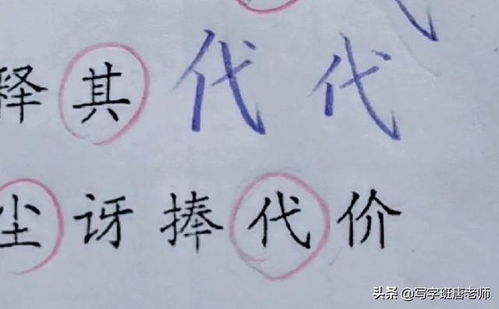 释其代代
尘讶捧代价
头条@写字班唐老师